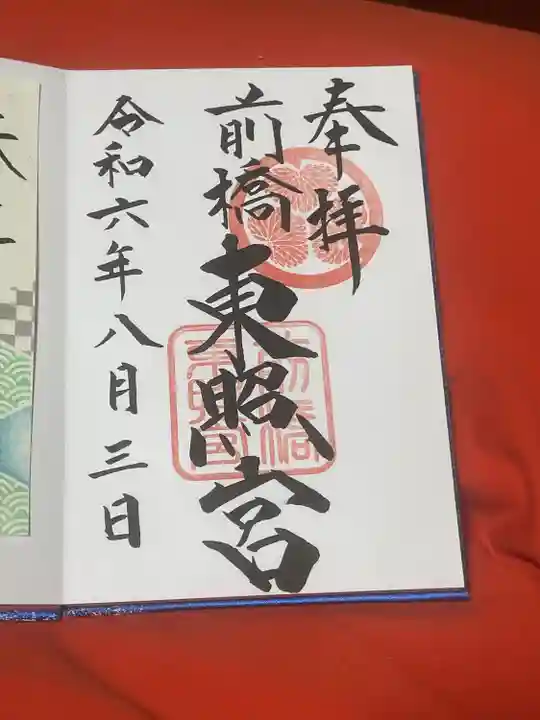 奉拝
前橋東照宮
令和六年八月三日
前橋
東照宮